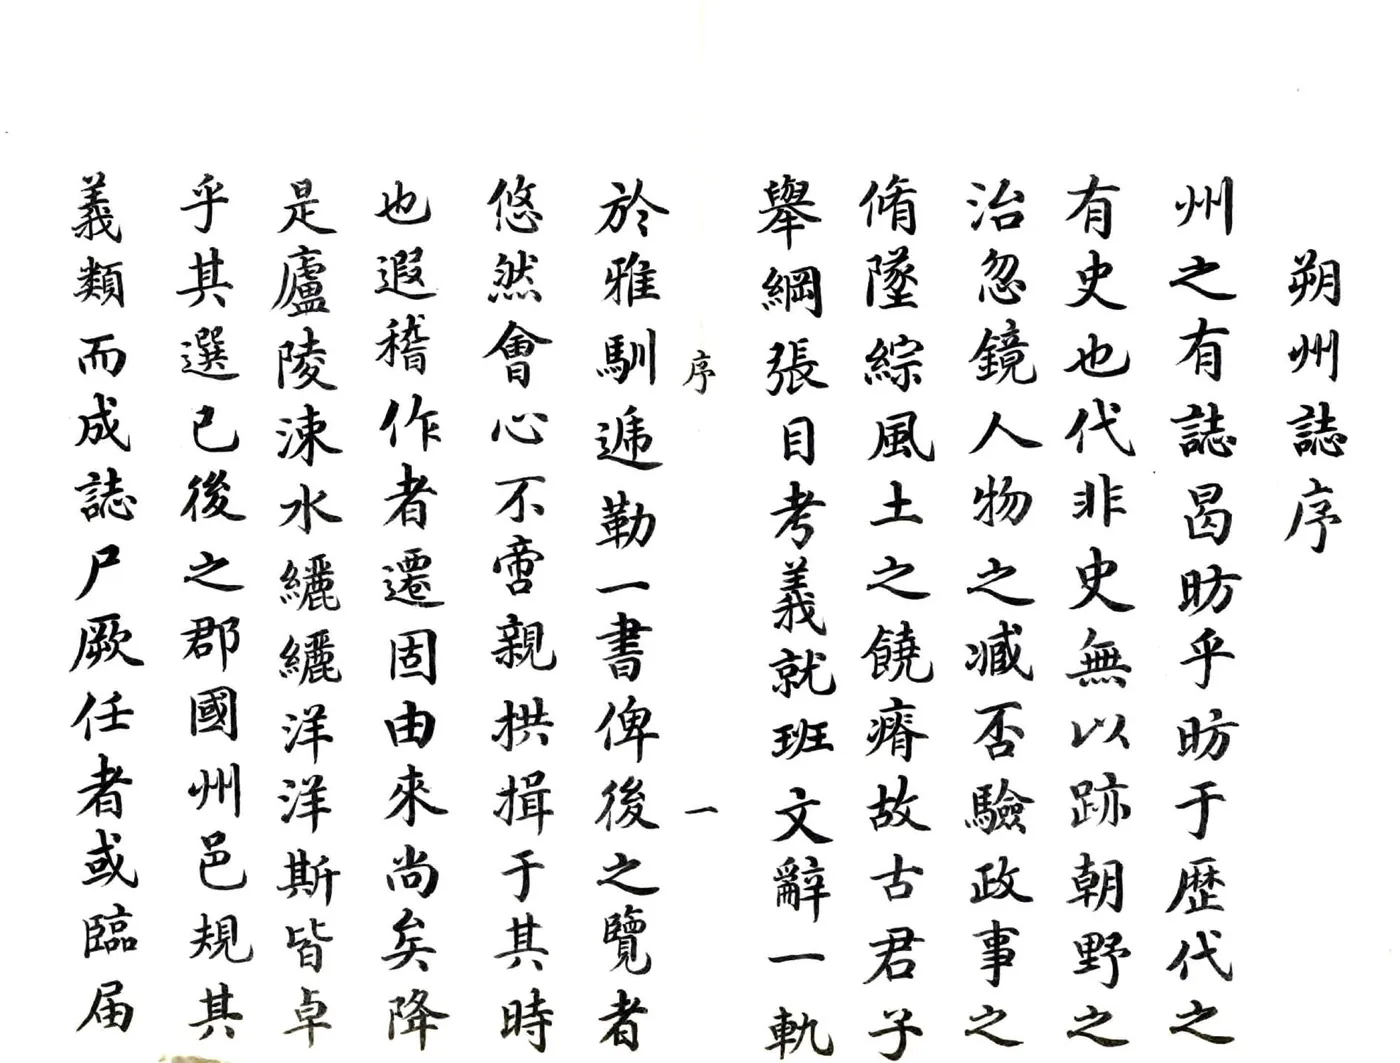 朔州誌序
州之有誌曷昉乎昉于歷代之
有史也代非史無以跡朝野之
治忽鏡人物之臧否驗政事之
脩墜綜風土之饒瘠故古君子
舉綱張目考義就班文辭一軌
序
一
於雅馴遞勒一書俾後之覽者
悠然會心不啻親拱揖于其時
也遐稽作者遷固由來尚矣降
是廬陵涑水纚纚洋洋斯皆卓
乎其選已後之郡國州邑規其
義類而成誌尸厥任者或臨届